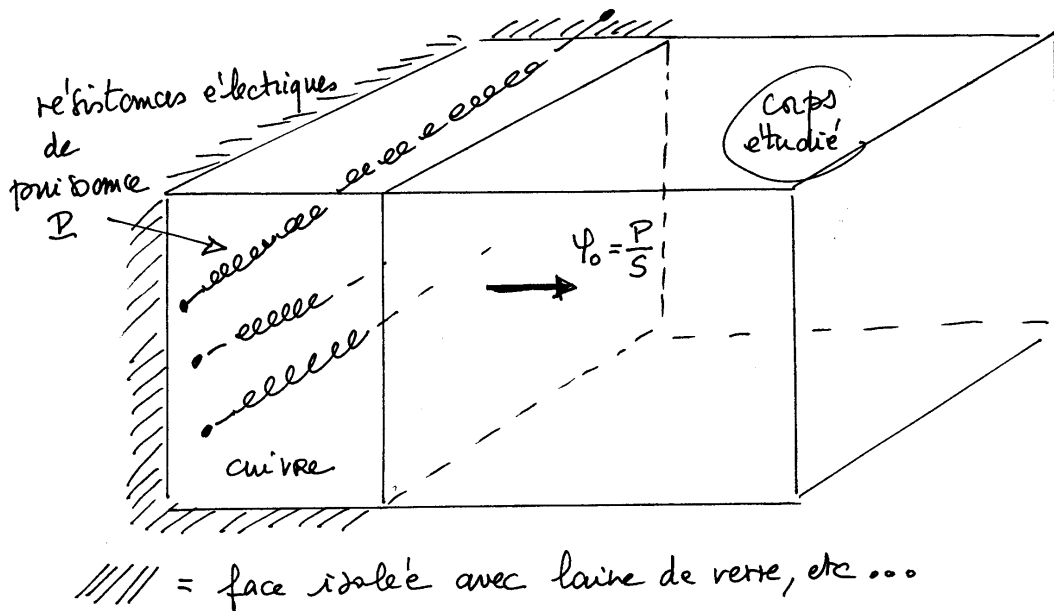 résistances électriques
de
puissance
P
corps
étudié
φ₀ = P/S
cuivre
//// = face isolée avec laine de verre, etc ...